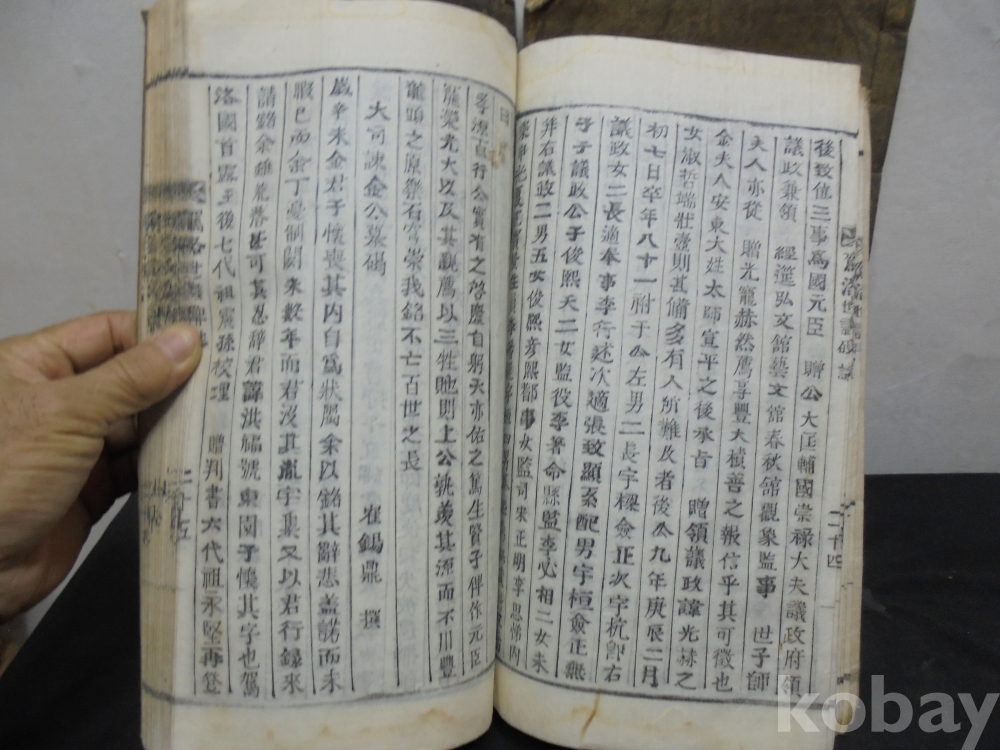 後致位三事爲國元臣 贈公大匡輔國崇祿大夫議政府領
議政兼領 經筵弘文館藝文館春秋館觀象監事 世子師
夫人亦從 贈光寵赫然薦享豐大積善之報信乎其可徵也
金夫人安東大姓太師宣平之後承旨 贈領議政諱光赫之
女淑哲端莊壼則甚備多有人所難及者後公九年庚辰二月
初七日卒年八十一祔于公左男二長宇樑僉正次宇杭卽右
議政女二長適奉事李行述次適張致顯系配男宇桓僉正熙
子子議政公子俊熙夭二女監役李著命縣監李心相二女未
笄右議政二男五女俊熙彦熙都事女監司宋正明李思悌內
曰
孝深 行公實有之啓慶自躬天亦佑之篤生賢子伴作元臣
寵榮尤大以及其親薦以三牲貤則上公孰羨其源而不川豐
龍頭之原欒石穹崇我銘不亡百世之長
大司諫金公墓碣 崔錫鼎 撰
歲辛未金君子懷喪其內自爲狀屬余以銘其辭悲盖諾而未
暇已而余丁憂制闋未數年而君沒其胤宇集又以君行錄來
請銘余雖衰落甚可其忍辭君諱洪福號東園子懷其字也駕
洛國首露王後七代祖震孫校理 贈判書六代祖永堅再登
二十四
二十五